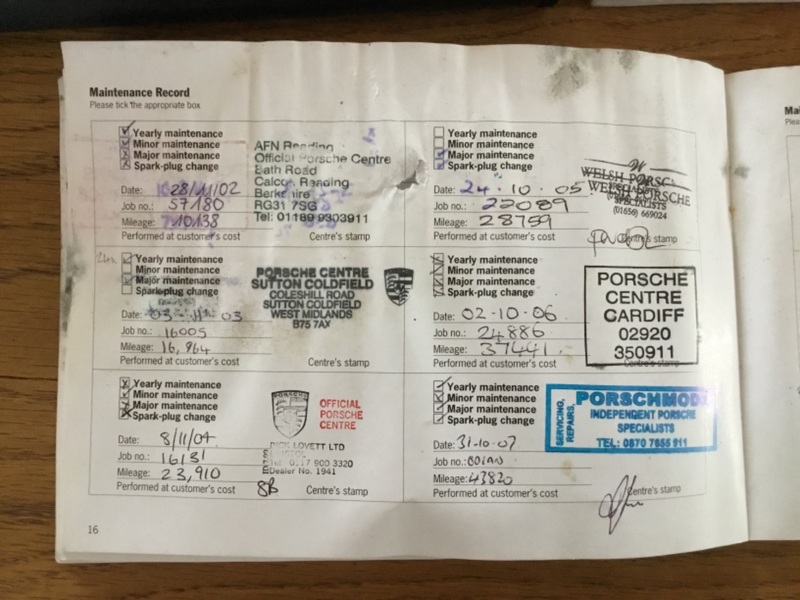 Maintenance Record
Please tick the appropriate box
Yearly maintenance
Minor maintenance
Major maintenance
Spark-plug change
Date: 28/11/02
Job no.: 57180
Mileage: 10138
Performed at customer's cost
AFN Reading
Official Porsche Centre
Bath Road
Calcot, Reading
Berkshire
RG31 7SG
Tel: 01189 9303911
Yearly maintenance
Minor maintenance
Major maintenance
Spark-plug change
Date: 03 11 03
Job no.: 16005
Mileage: 16,964
Performed at customer's cost
PORSCHE CENTRE
SUTTON COLDFIELD
COLESHILL ROAD
SUTTON COLDFIELD
WEST MIDLANDS
B75 7AX
Centre's stamp
Yearly maintenance
Minor maintenance
Major maintenance
Spark-plug change
Date: 8/11/04
Job no.: 16131
Mileage: 23,910
Performed at customer's cost
PORSCHE
OFFICIAL
PORSCHE
CENTRE
DICK LOVETT LTD
BRISTOL
Tel 0117 900 3320
Dealer No. 1941
SB
Centre's stamp
Yearly maintenance
Minor maintenance
Major maintenance
Spark-plug change
Date: 24 · 10 · 05
Job no.: 22089
Mileage: 28759
Performed at customer's cost
WELSH PORSCHE
SPECIALISTS
(01656) 669024
Centre's stamp
Yearly maintenance
Minor maintenance
Major maintenance
Spark-plug change
Date: 02-10-06
Job no.: 24886
Mileage: 37441.
Performed at customer's cost
PORSCHE
CENTRE
CARDIFF
02920
350911
Centre's stamp
Yearly maintenance
Minor maintenance
Major maintenance
Spark-plug change
Date: 31-10-07
Job no.:
Mileage: 43820
Performed at customer's cost
SERVICING,
REPAIRS,
PORSCHMOD
INDEPENDENT PORSCHE
SPECIALISTS
TEL: 0870 7655 911
Centre's stamp
16
Ma
Pleas